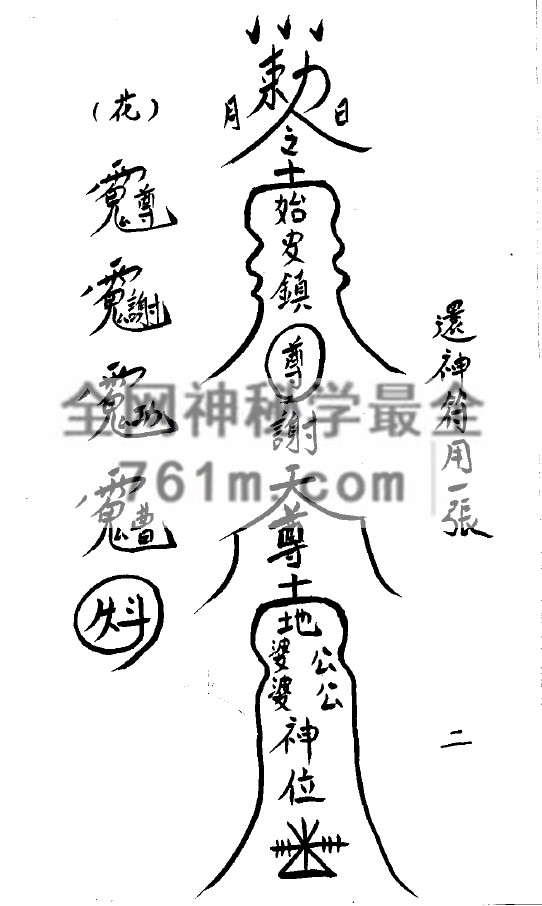 還神符用一張
二
敕
日
月
之
土
始皮鎮
尊
謝
天
尊
土
地
公公
婆婆
神位
(花)
尊
謝
曹
全网神秘学最全
761m.com